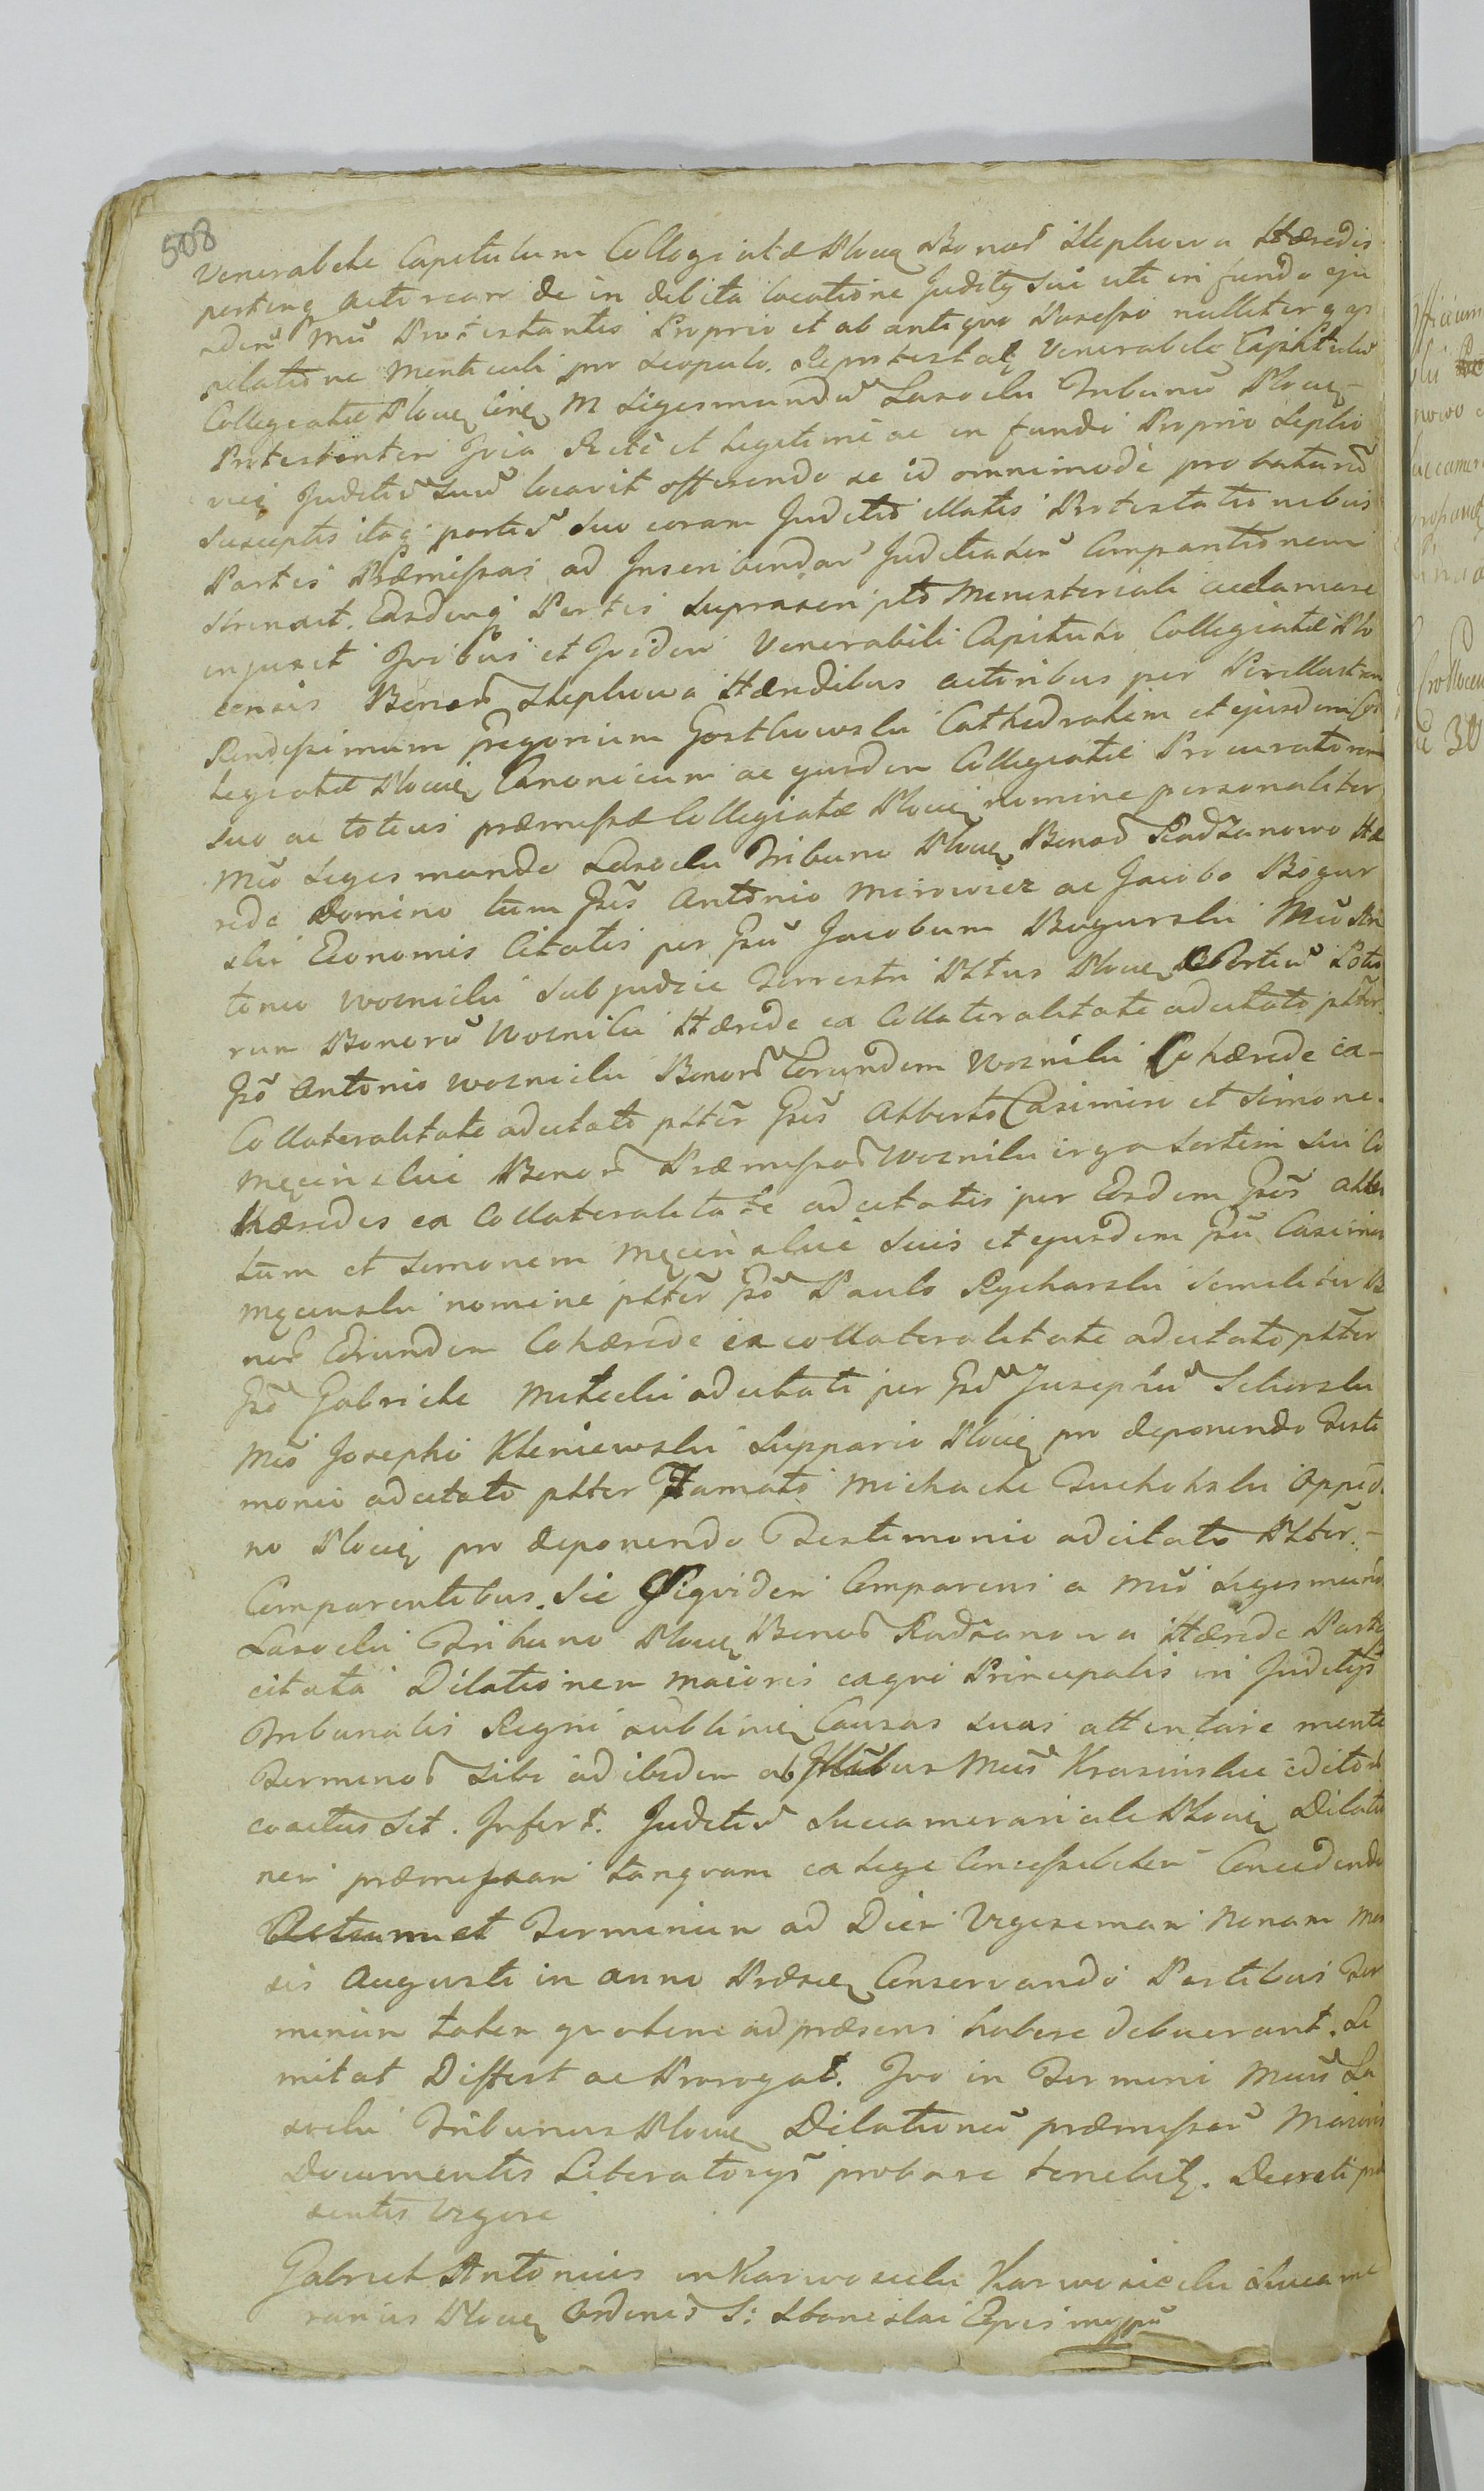 508
Venerabile Capitulum Collegiatæ Plocen Bonor Słupkowa Hæredis
pertinen actorean de in debita locatione Judity sui uti in fundo eju
sdem Mci Protestantis Proprio et ab antiquo Possesso nulliter
relatione Monticuli pro Scopulo. Reprotestatq Venerabile Capitulu
Collegiatæ Plocen M Sigismundus Lasocki Tribunus Plocen
Protestantem Quia Rite et Legitime ac in fundi Proprio
Juditiu Suu locavit offerendo se id omnimode probaturu
Susceptis itaq partiu suo coram Juditio illatis Protestationibus
Partes Præmissas ad Inscribendam Juditialem Comparitionem
strinxit. Easdemq Partes Suprascripto Ministeriali acclamare
injunxit Quibus et Quidem Venerabili Capitulo Collegiatæ Plo
censis Bonor Słupkowa Hæredibus actoribus per Perillustrem
Rendissimum Gregorium Gostkowski Cathedralem et ejusdem Col
legiatæ Plocen Canonicum ac ejusdem Collegiatæ Procuratorem
suo ac totius præmissæ Collegiatæ Plocen nomine personaliter
Mco Sigismundo Lasocki Tribuno Plocen Bonor Radzanowo Hæ
rede Domino tum Gsis Antonio Mirowicz ac Jacobo Bogur
ski Economis Citatis per Gsu Jacobum Bogurski Mco An
tonio Woznicki Subjudice Terrestri Pttus Plocen Partiu Potio
rum Bonoru Wozniki Hærede ex Collateralitate adcitato ptter
Gso Antonio Woznicki Bonoru Eorundem Wozniki Cohærede ex
Collateralitate adcitato ptter Gsis Alberto Casimiro et Simone
Męcinskie Bonoru Præmissor Wozniki erga Sortem sui Co
hæredes ex Collateralitate adcitatis per Eosdem Gsos Alber
tum et Simonem Męcinskie Suis et ejusdem Gsi Casimiri
Męcinski nomine ptter Gso Paulo Rycharski similiter Bo
nor Eorundem Cohærede ex collateralitate adcitato ptter
Gso Gabriele Mitecki adcitati per Gsu Josephu Sikorski
Mco Josepho Kleniewski Suppario Plocen pro deponendo Testi
monio adcitato ptter Famato Michaele Suchokski Oppid
no Plocen pro deponendo Testimonio adcitato Ptter
Comparentibus. Sic Siquidem Comparens a Mco Sigismundo
Lasocki Tribuno Plocen Bonor Radzanowa Hærede Parte
citata Dilationem maioris eaque Principalis in Juditys
Tribunalis Regni Lublinen Causas suas attentare mente
Terminor Sibi adibidem ab Illibus Mcis Krasinskie editor
coactus sit. Infert. Juditiu Succamerariale Plocen Dilatio
nem præmissam tanquam ex Lege Concessibilem Concedendo
Actum et Terminum ad Diem Vigesimam Nonam Men
sis Augusti in anno Præsen Conservando Partibus Ter
minum talem qualem ad præsens habere debuerant. Li
mitat Differt ac Prorogat. Quo in Termino Mcus La
socki Tribunus Plocen Dilationem præmissam Maioris
Documentis Liberatorys probare tenebitq. Decreti præ
sentis Vigore
Gabriel Antonius in Karwosiecki Karwosiecki Succame
rarius Plocen Ordinis S: Stanislai Eques mppr